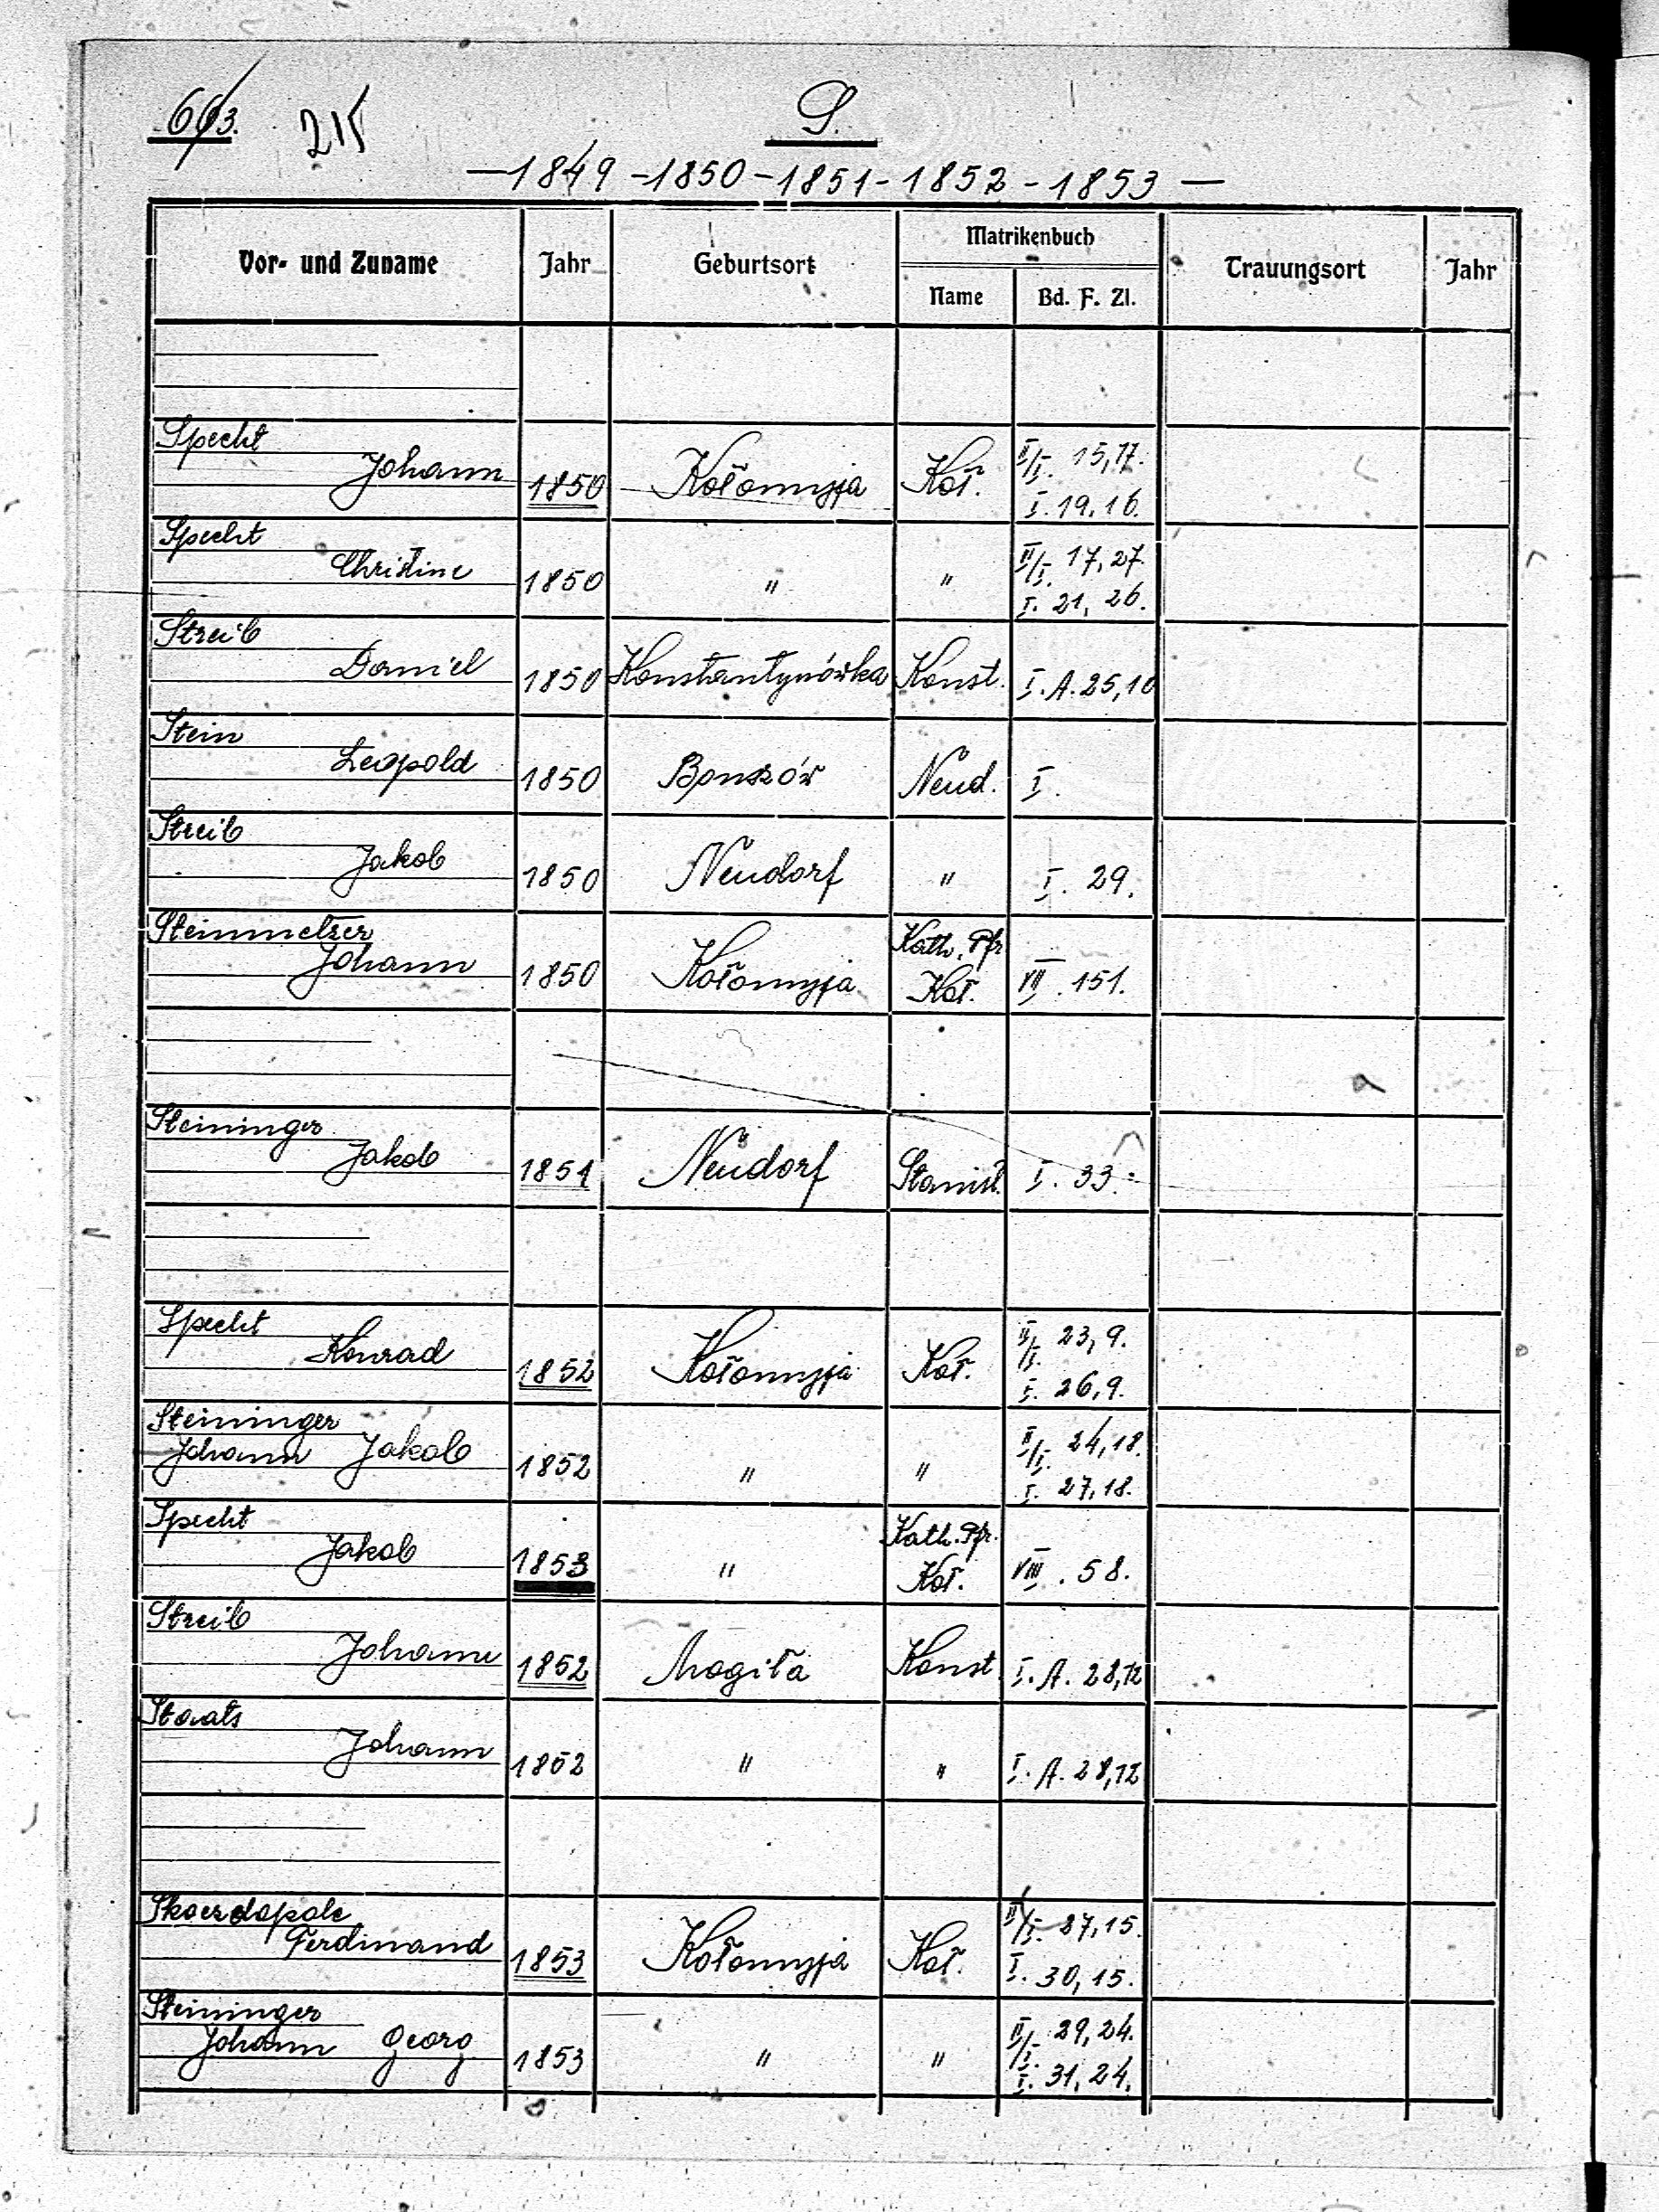 663. 215
S.
— 1849 - 1850 - 1851 - 1852 - 1853 —
Vor- und Zuname Jahr Geburtsort Matrikenbuch Trauungsort Jahr
Name Bd. F. Zl.
Specht II/I. 15,17.
Johann 1850 Kołomyja Koł. I. 19.16.
Specht II/I. 17,27.
Christine 1850 " " I. 21, 26.
Streib
Daniel 1850 Konstantynówka Konst. I. A. 25,10
Stein
Leopold 1850 Bouszów Neud. I.
Streib
Jakob 1850 Neudorf " I. 29.
Steinmetzer Kath. Pfr
Johann 1850 Kołomyja Koł. VII. 151.
Steininger
Jakob 1851 Neudorf Stanisł. I. 33.
Specht II/I. 23,9.
Konrad 1852 Kołomyja Koł. I. 26,9.
Steininger II/I. 24,18.
Johann Jakob 1852 " " I. 27,18.
Specht Kath. Pfr.
Jakob 1853 " Koł. VIII. 58.
Streib
Johann 1852 Mogiła Konst. I. A. 28,12
Staats
Johann 1852 " " I. A. 28,12
II/I. 27,15.
Ferdinand 1853 Kołomyja Koł. I. 30,15.
Steininger II/I. 29,24.
Johann Georg 1853 " " I. 31,24.